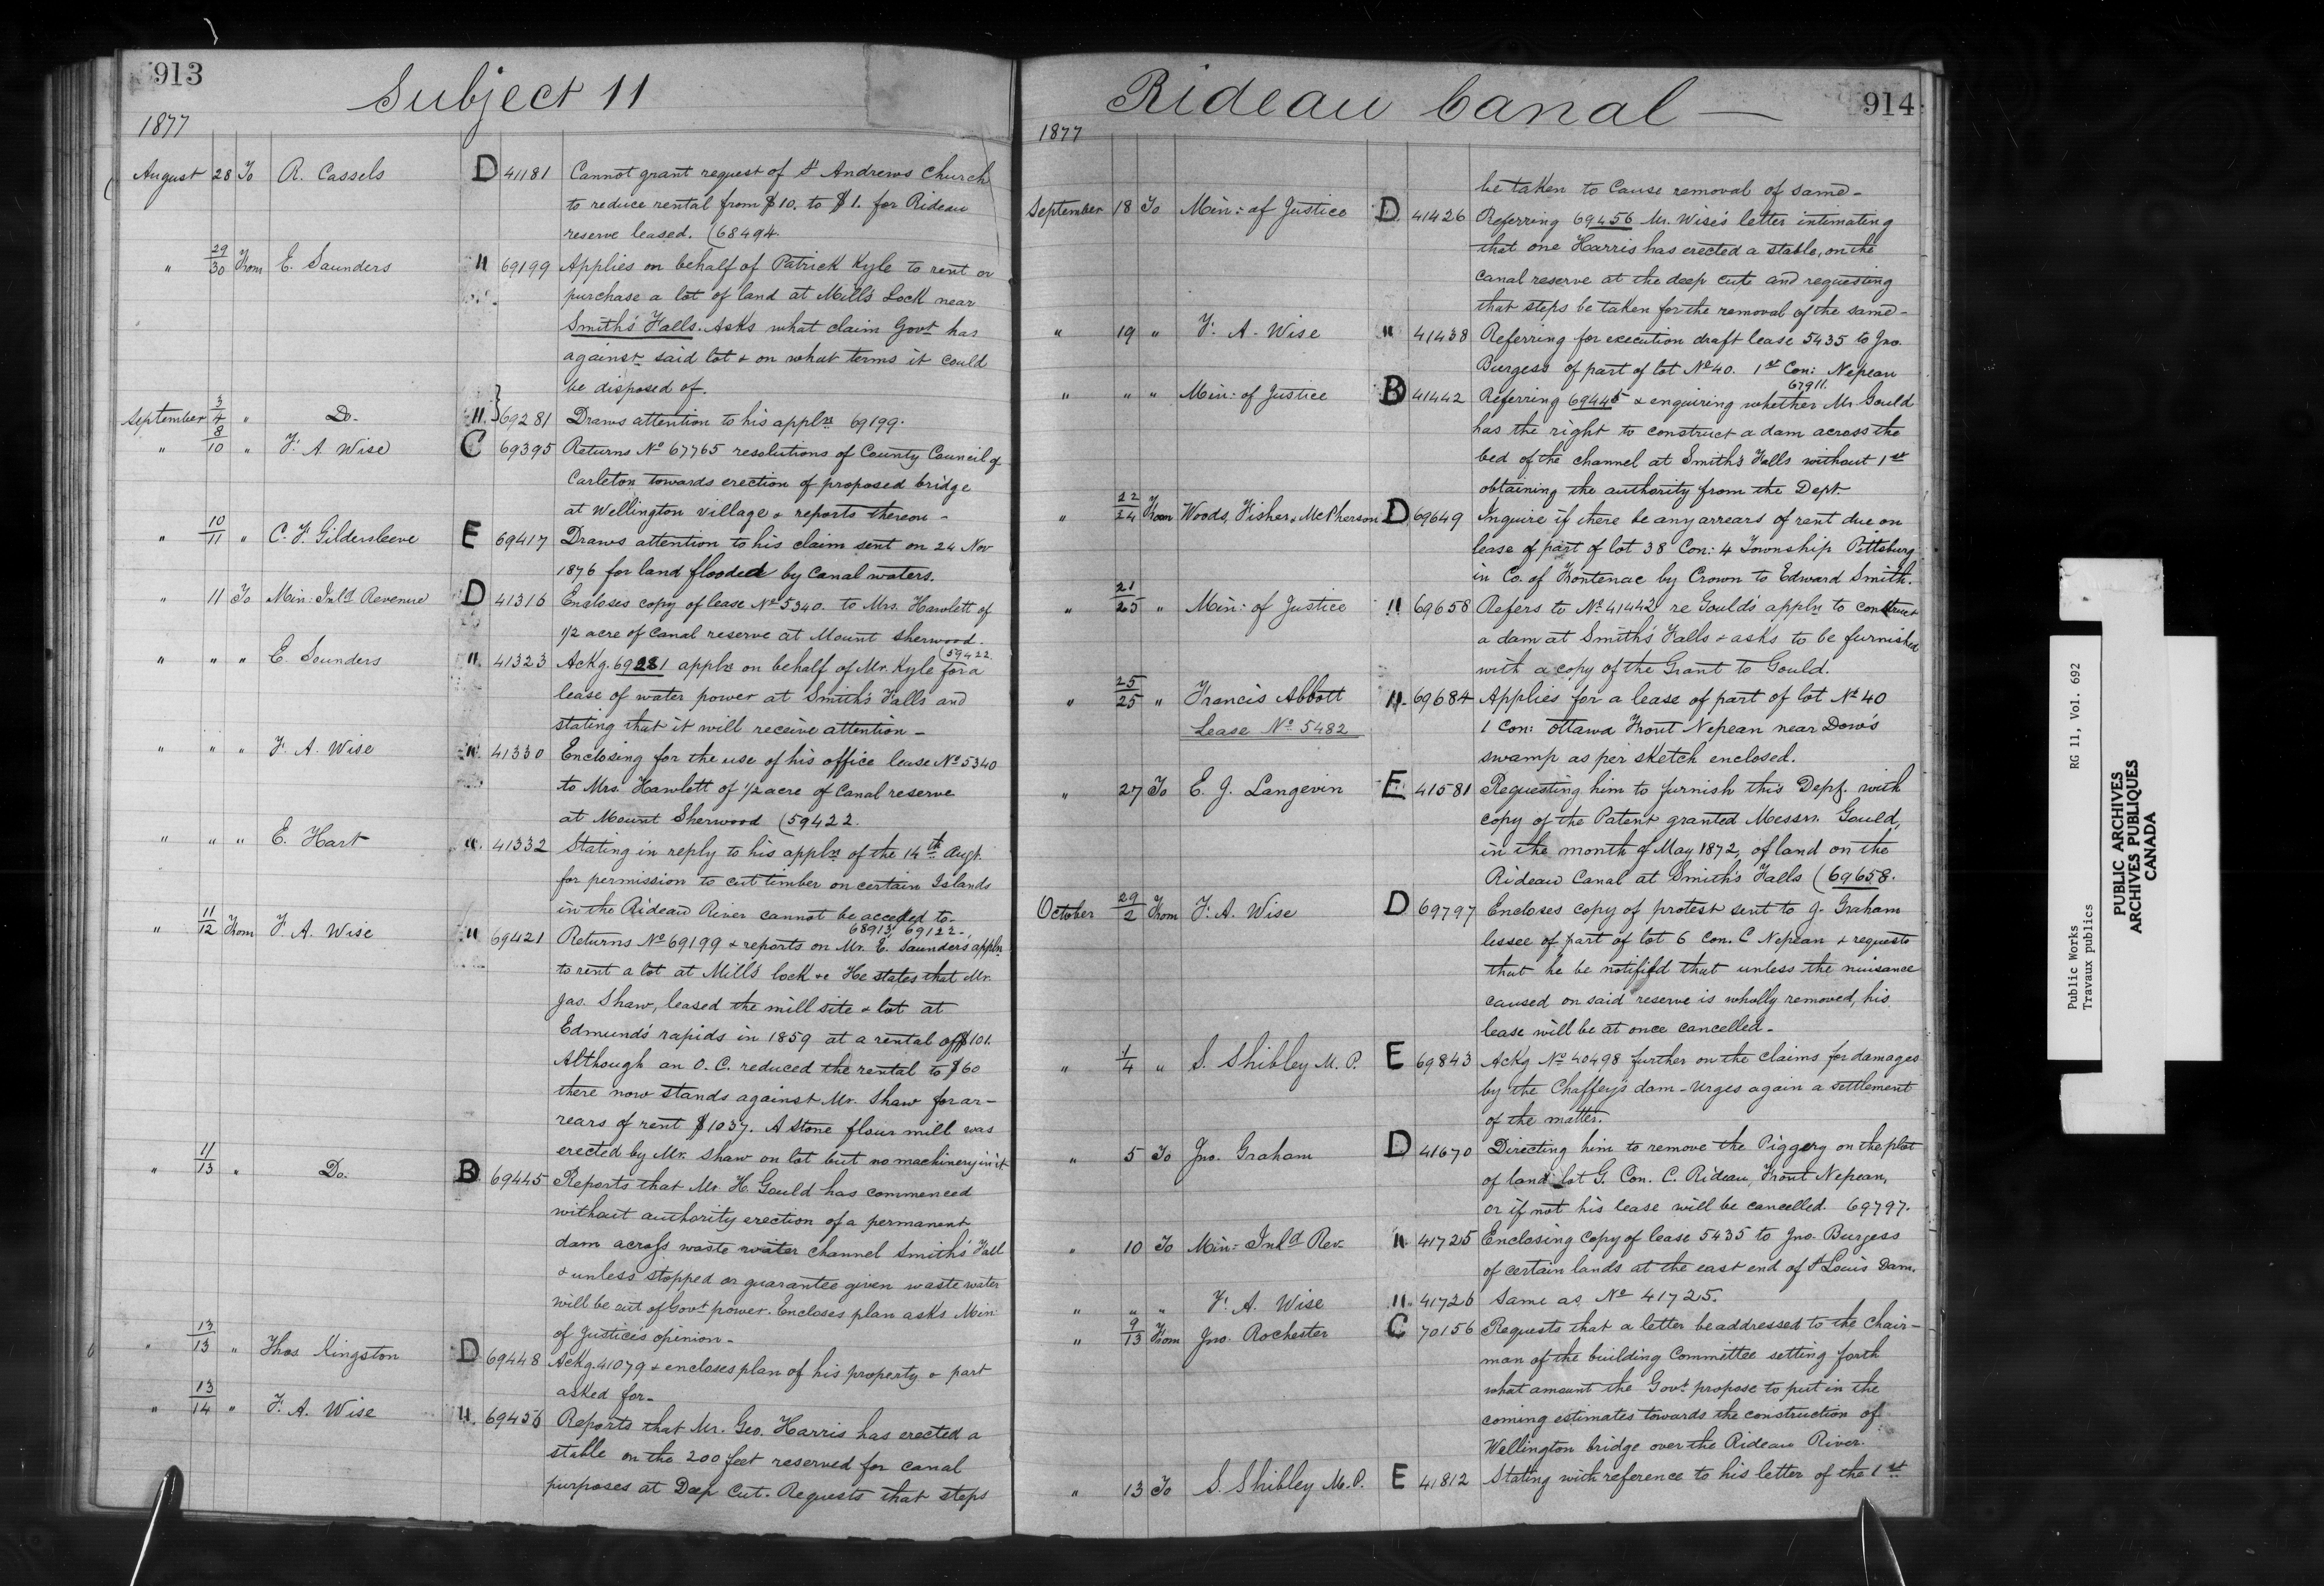 913
Subject 11
1877
August 28 To R. Cassels D 41181 Cannot grant request of St Andrews Church
to reduce rental from $10. to $1. for Rideau
reserve leased. (68494.
" 29/30 From E. Saunders " 69199 Applies on behalf of Patrick Kyle to rent or
purchase a lot of land at Mill's Lock near
Smith's Falls. Asks what claim Govt has
against said lot & on what terms it could
be disposed of.
September 3/4 " Do. " 69281 Draws attention to his appln 69199.
" 8/10 " F. A. Wise C 69395 Returns No 67765 resolutions of County Council of
Carleton towards erection of proposed bridge
at Wellington village & reports thereon -
" 10/11 " C. F. Gildersleeve E 69417 Draws attention to his claim sent on 24 Nov
1876 for land flooded by Canal waters.
" 11 To Min: Inld Revenue D 41316 Encloses copy of lease No 5340. to Mrs. Hawlett of
1/2 acre of Canal reserve at Mount Sherwood.
(59422
" " " E. Saunders " 41323 Ackg. 69281 appln on behalf of Mr. Kyle for a
lease of water power at Smith's Falls and
stating that it will receive attention -
" " " F. A. Wise " 41330 Enclosing for the use of his office lease No 5340
to Mrs. Hawlett of 1/2 acre of Canal reserve
at Mount Sherwood (59422.
" " " E. Hart " 41332 Stating in reply to his appln of the 14th Augt.
for permission to cut timber on certain Islands
in the Rideau River cannot be acceded to-
68913, 69122-
" 11/12 From F. A. Wise " 69421 Returns No 69199 & reports on Mr. E. Saunders appln
to rent a lot at Mill's lock &c He states that Mr.
Jas. Shaw, leased the mill site & lot at
Edmund's rapids in 1859 at a rental of $101.
Although an O. C. reduced the rental to $60
there now stands against Mr. Shaw for ar-
rears of rent $1037. A stone flour mill was
erected by Mr. Shaw on lot but no machinery in it
" 11/13 " Do. B 69445 Reports that Mr. H. Gould has commenced
without authority erection of a permanent
dam across waste water channel Smith's Fall
& unless stopped or guarantee given waste water
will be out of Govt power. Encloses plan asks Min
of Justice's opinion-
" 13/13 " Thos Kingston D 69448 Ackg. 41079 & encloses plan of his property & part
asked for-
" 13/14 " F. A. Wise " 69456 Reports that Mr. Geo. Harris has erected a
stable on the 200 feet reserved for canal
purposes at Deep Cut. Requests that steps
Rideau Canal —
914
1877
be taken to cause removal of same-
September 18 To Min: of Justice D 41426 Referring 69456 Mr. Wise's letter intimating
that one Harris has erected a stable, on the
canal reserve at the deep cut and requesting
that steps be taken for the removal of the same-
" 19 " F. A. Wise " 41438 Referring for execution draft lease 5435 to Jno.
Burgess of part of lot No 40. 1st Con: Nepean
67911.
" " " Min: of Justice B 41442 Referring 69445 & enquiring whether Mr Gould
has the right to construct a dam across the
bed of the channel at Smith's Falls without 1st
obtaining the authority from the Dept.
" 22/24 From Woods, Fisher & McPherson D 69649 Inquire if there be any arrears of rent due on
lease of part of lot 38 Con: 4 Township Pittsburg
in Co. of Frontenac by Crown to Edward Smith.
" 21/25 " Min: of Justice " 69658 Refers to No 41442 re Gould's appln to construct
a dam at Smith's Falls & asks to be furnished
with a copy of the Grant to Gould.
" 25/25 " Francis Abbott " 69684 Applies for a lease of part of lot No 40
Lease No 5482 1 Con: Ottawa Front Nepean near Dow's
swamp as per sketch enclosed.
" 27 To E. J. Langevin E 41581 Requesting him to furnish this Dept. with
copy of the Patent granted Messrs. Gould,
in the month of May 1872, of land on the
Rideau Canal at Smith's Falls (69658.
October 29/2 From F. A. Wise D 69797 Encloses copy of protest sent to J. Graham
lessee of part of lot 6 Con. C Nepean & requests
that he be notified that unless the nuisance
caused on said reserve is wholly removed, his
lease will be at once cancelled-
" 1/4 " S. Shibley M. P. E 69843 Ackg No 40498 further on the claims for damages
by the Chaffey's dam - Urges again a settlement
of the matter.
" 5 To Jno. Graham D 41670 Directing him to remove the Piggery on the plot
of land lot G. Con. C. Rideau, Front Nepean,
or if not his lease will be cancelled. 69797.
" 10 To Min: Inld Rev. " 41725 Enclosing copy of lease 5435 to Jno. Burgess
of certain lands at the east end of St Louis Dam.
" " " F. A. Wise " 41726 Same as No 41725.
" 9/13 From Jno. Rochester C 70156 Requests that a letter be addressed to the Chair-
man of the building Committee setting forth
what amount the Govt propose to put in the
coming estimates towards the construction of
Wellington bridge over the Rideau River.
" 13 To S. Shibley M.P. E 41812 Stating with reference to his letter of the 1st
Public Works RG 11, Vol. 692
Travaux publics
PUBLIC ARCHIVES
ARCHIVES PUBLIQUES
CANADA